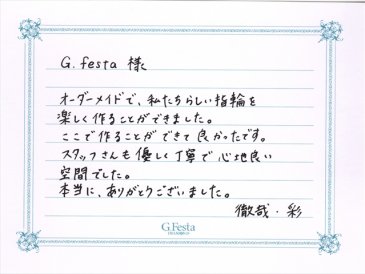 G.festa 様
オーダーメイドで、私たちらしい指輪を
楽しく作ることができました。
ここで作ることができて良かったです。
スタッフさんも優しく丁寧で心地良い
空間でした。
本当に、ありがとうございました。
徹哉・彩
G.Festa